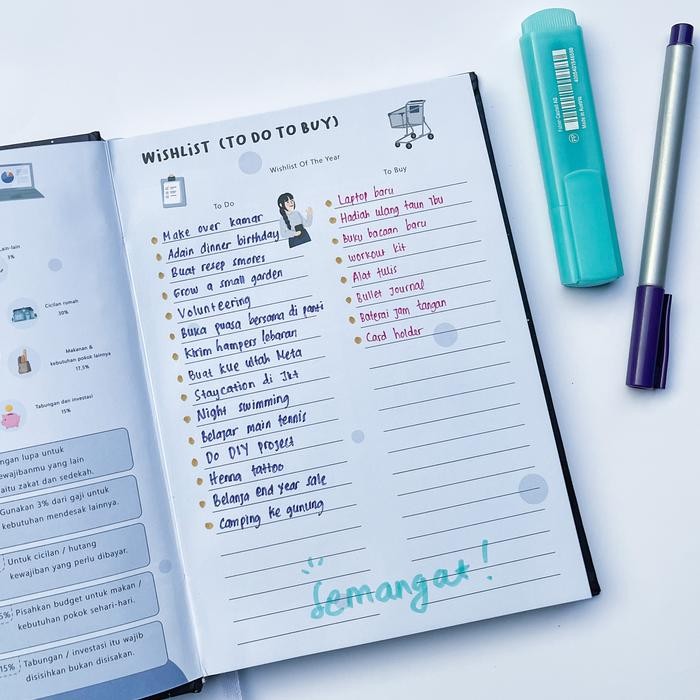 Lain-lain
Cicilan rumah
30%
Makanan &
kebutuhan pokok lainnya
17,5%
Tabungan dan investasi
15%
ngan lupa untuk
ewajibanmu yang lain
aitu zakat dan sedekah.
Gunakan 3% dari gaji untuk
kebutuhan mendesak lainnya.
Untuk cicilan / hutang
kewajiban yang perlu dibayar.
Pisahkan budget untuk makan /
kebutuhan pokok sehari-hari.
15%
Tabungan / investasi itu wajib
disisihkan bukan disisakan.
WISHLIST (TO DO TO BUY)
Wishlist Of The Year
To Do
Make over kamar
Adain dinner birthday
Buat resep smores
Grow a small garden
Volunteering
Buka puasa bersama di panti
Kirim hampers lebaran
Buat kue ultah Meta
Staycation di Jkt
Night swimming
Belajar main tennis
Do DIY project
Henna tattoo
Belanja end year sale
Camping ke gunung
To Buy
Laptop baru
Hadiah ulang taun Ibu
Buku bacaan baru
Workout kit
Alat tulis
Bullet Journal
Baterai jam tangan
Card holder
Semangat!
Faber-Castell AG
Made in Austria